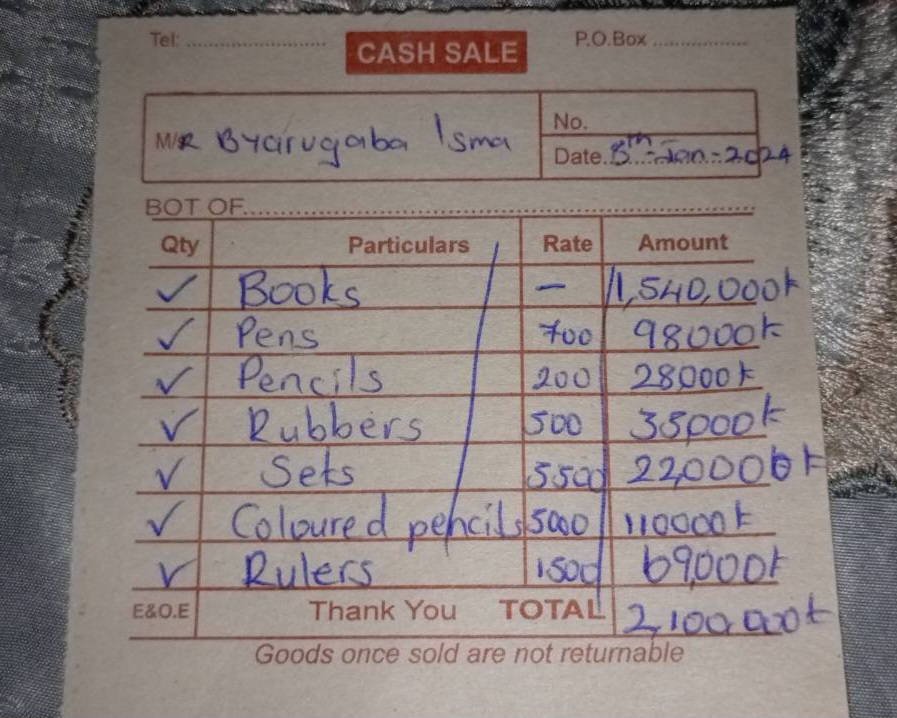 Tel: ........................ CASH SALE P.O.Box ................
M/R Byarugaba Isma
No.
Date. 5th-Jan-2024
BOT OF........................................................
Qty Particulars Rate Amount
✓ Books — 1,540,000k
✓ Pens 700 98000k
✓ Pencils 200 28,000k
✓ Rubbers 500 35,000k
✓ Sets 5500 220000k
✓ Coloured pencils 5000 110000k
✓ Rulers 1500 69,000k
E&O.E Thank You TOTAL 2,100,000k
Goods once sold are not returnable